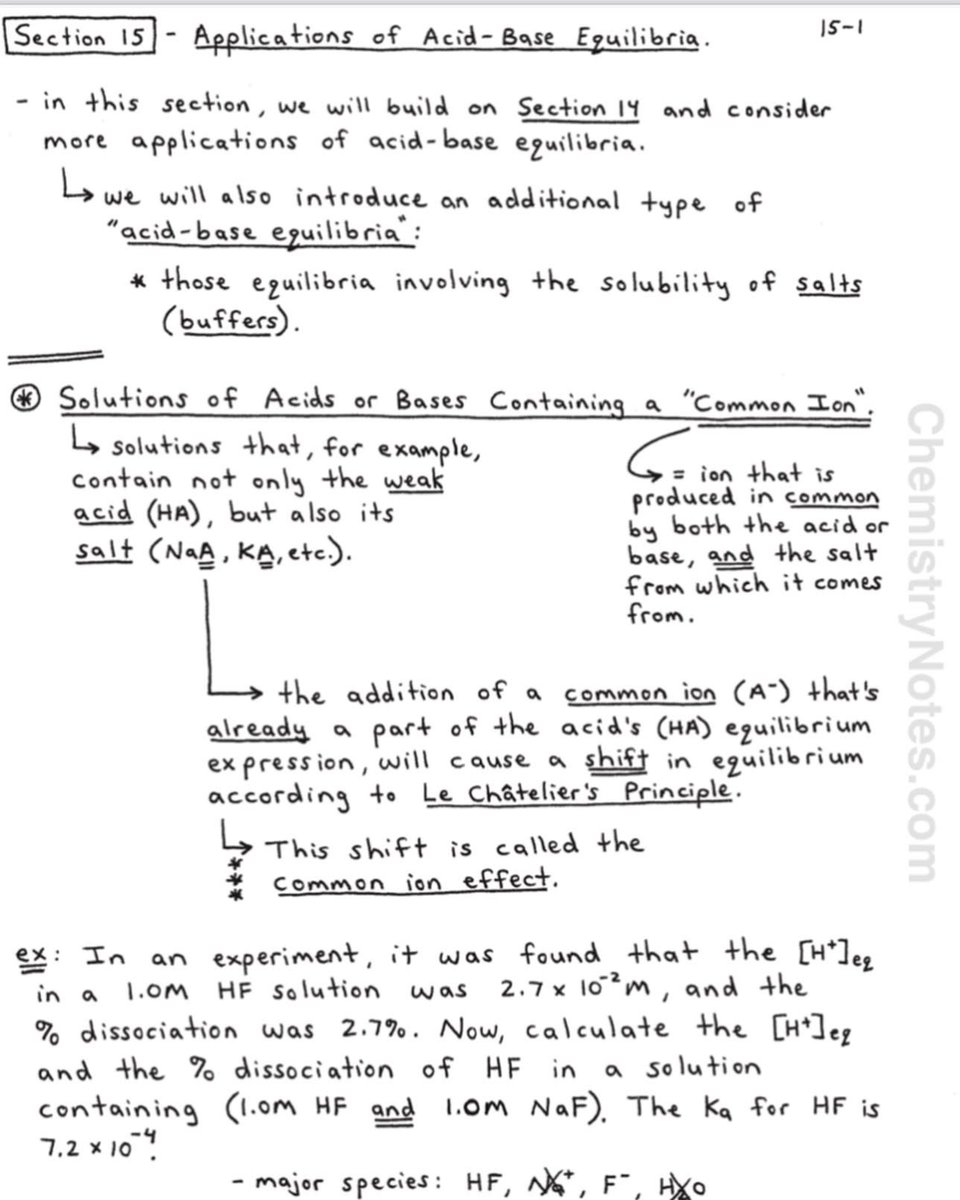 Section 15 - Applications of Acid-Base Equilibria. 15-1
- in this section, we will build on Section 14 and consider
more applications of acid-base equilibria.
↳ we will also introduce an additional type of
"acid-base equilibria":
* those equilibria involving the solubility of salts
(buffers).
⊛ Solutions of Acids or Bases Containing a "Common Ion".
↳ solutions that, for example,
contain not only the weak
acid (HA), but also its
salt (NaA, KA, etc.).
↳ = ion that is
produced in common
by both the acid or
base, and the salt
from which it comes
from.
↳ the addition of a common ion (A⁻) that's
already a part of the acid's (HA) equilibrium
expression, will cause a shift in equilibrium
according to Le Châtelier's Principle.
↳ This shift is called the
*** common ion effect.
ex: In an experiment, it was found that the [H⁺]eq
in a 1.0M HF solution was 2.7 x 10⁻²M, and the
% dissociation was 2.7%. Now, calculate the [H⁺]eq
and the % dissociation of HF in a solution
containing (1.0M HF and 1.0M NaF). The Ka for HF is
7.2 x 10⁻⁴.
- major species: HF, Na⁺, F⁻, H₂O
ChemistryNotes.com